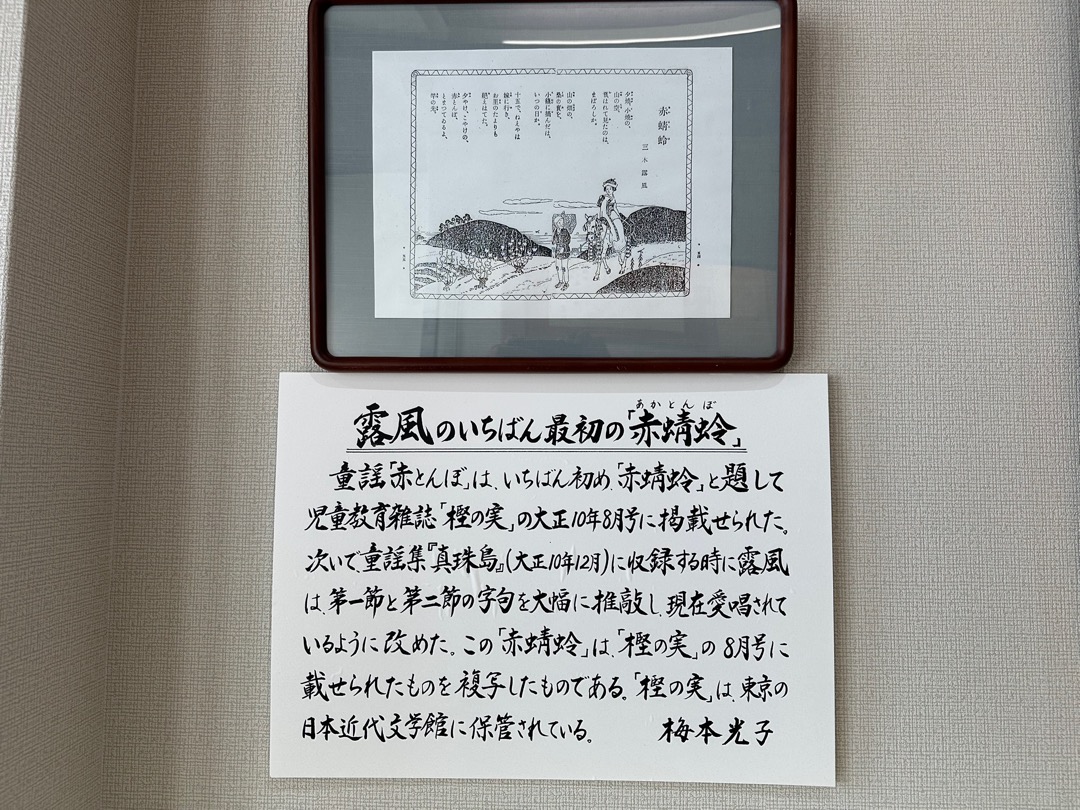 赤蜻蛉
三木露風
夕焼、小焼の、
山の空、
負はれて見たのは、
まぼろしか。
山の畑の、
桑の實を、
小籠に摘んだは、
いつの日か。
十五で、ねえやは
嫁に行き、
お里のたよりも
絶えはてた。
夕やけ、こやけの、
赤とんぼ、
とまつてゐるよ、
竿の先。
あかとんぼ
露風のいちばん最初の「赤蜻蛉」
童謡「赤とんぼ」は、いちばん初め、「赤蜻蛉」と題して
児童教育雑誌「樫の実」の大正10年8月号に掲載せられた。
次いで、童謡集『真珠島』(大正10年12月)に収録する時に露風
は、第一節と第二節の字句を大幅に推敲し、現在愛唱されて
いるように改めた。この「赤蜻蛉」は、「樫の実」の8月号に
載せられたものを複写したものである。「樫の実」は、東京の
日本近代文学館に保管されている。 梅本光子